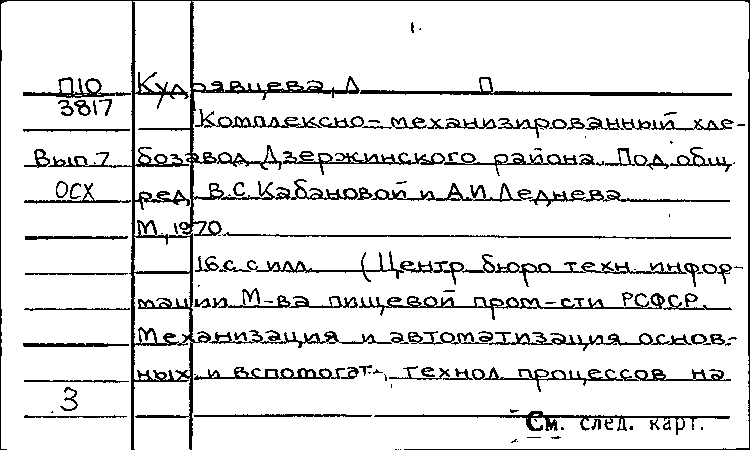 1.
П10 Кудрявцева, Л П
3817
Комплексно-механизированный хле-
Вып. 7 бозавод Дзержинского района. Под общ.
ОСХ ред. В.С. Кабановой и А.И. Леднева
М., 1970.
16 с. с илл. (Центр. бюро техн. инфор-
мации М-ва пищевой пром-сти РСФСР.
Механизация и автоматизация основ-
ных и вспомогат. технол. процессов на
3
См. след. карт.